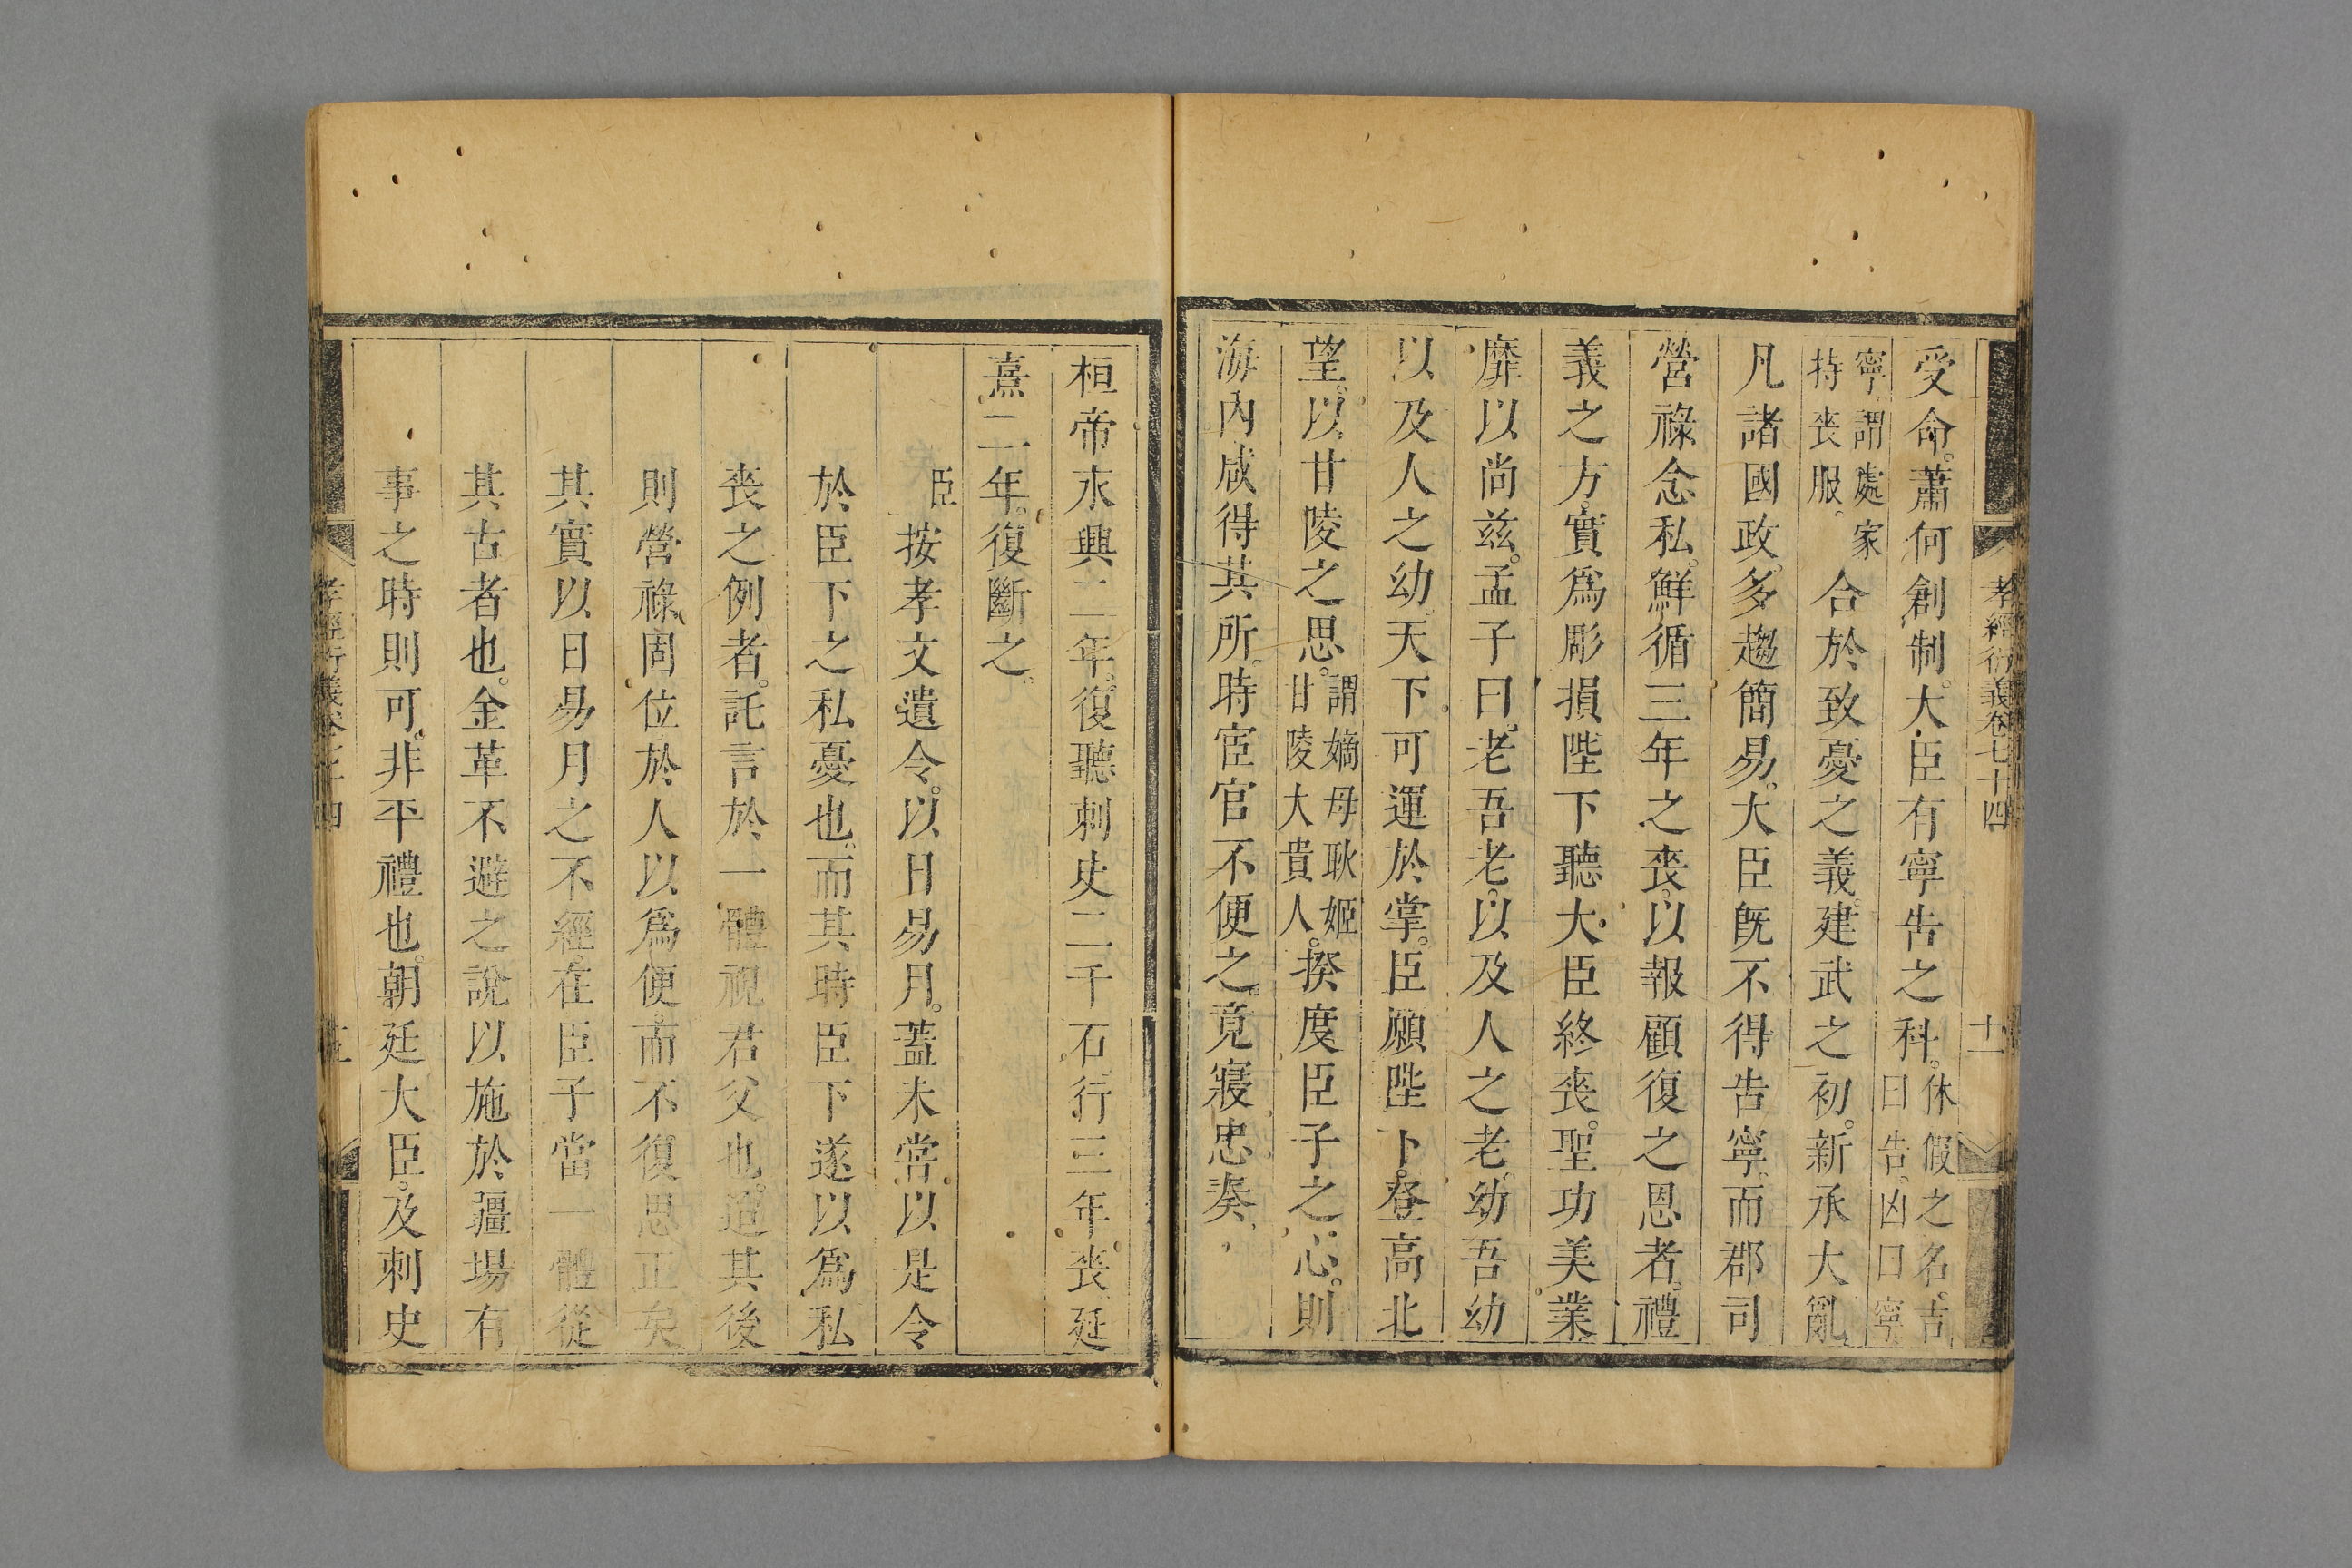 孝經衍義卷七十四
十一
受命。蕭何創制。大臣有寧告之科。休假之名。吉曰告。凶曰寧
寧。謂處家持喪服。合於致憂之義。建武之初。新承大亂
凡諸國政。多趨簡易。大臣旣不得告寧。而郡司
營祿念私。鮮循三年之喪。以報顧復之恩者。禮
義之方。實爲彫損。陛下聽大臣終喪。聖功美業
靡以尚兹。孟子曰。老吾老。以及人之老。幼吾幼
以及人之幼。天下可運於掌。臣願陛下。登高北
望。以甘陵之思。謂嫡母耿姬甘陵大貴人。揆度臣子之心。則
海內咸得其所。時宦官不便之。竟寢忠奏。
桓帝永興二年。復聽刺史二千石行三年喪。延
熹二年。復斷之。
臣按孝文遺令。以日易月。蓋未嘗以是令
於臣下之私憂也。而其時臣下遂以爲私
喪之例者。託言於一體視君父也。迨其後
則營祿固位於人以爲便。而不復思正矣
其實以日易月之不經。在臣子當一體從
其古者也。金革不避之說以施於疆場有
事之時則可。非平禮也。朝廷大臣。及刺史